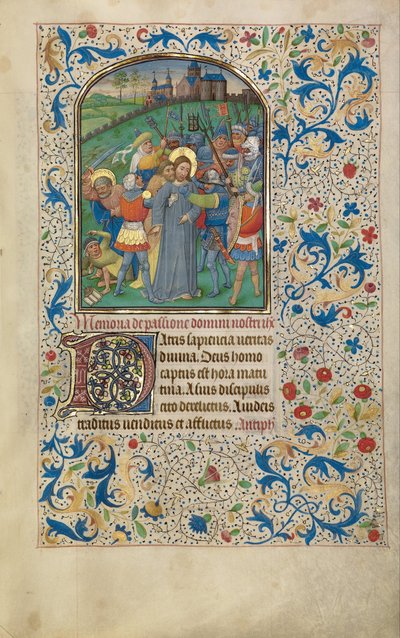 Memoria de passione domini nostri
Patris sapiencia ueritas
diuina. Deus homo
captus est hora matu
tina. A suis discipulis
cito derelictus. A iudeis
traditus uenditus et afflictus. Antiph